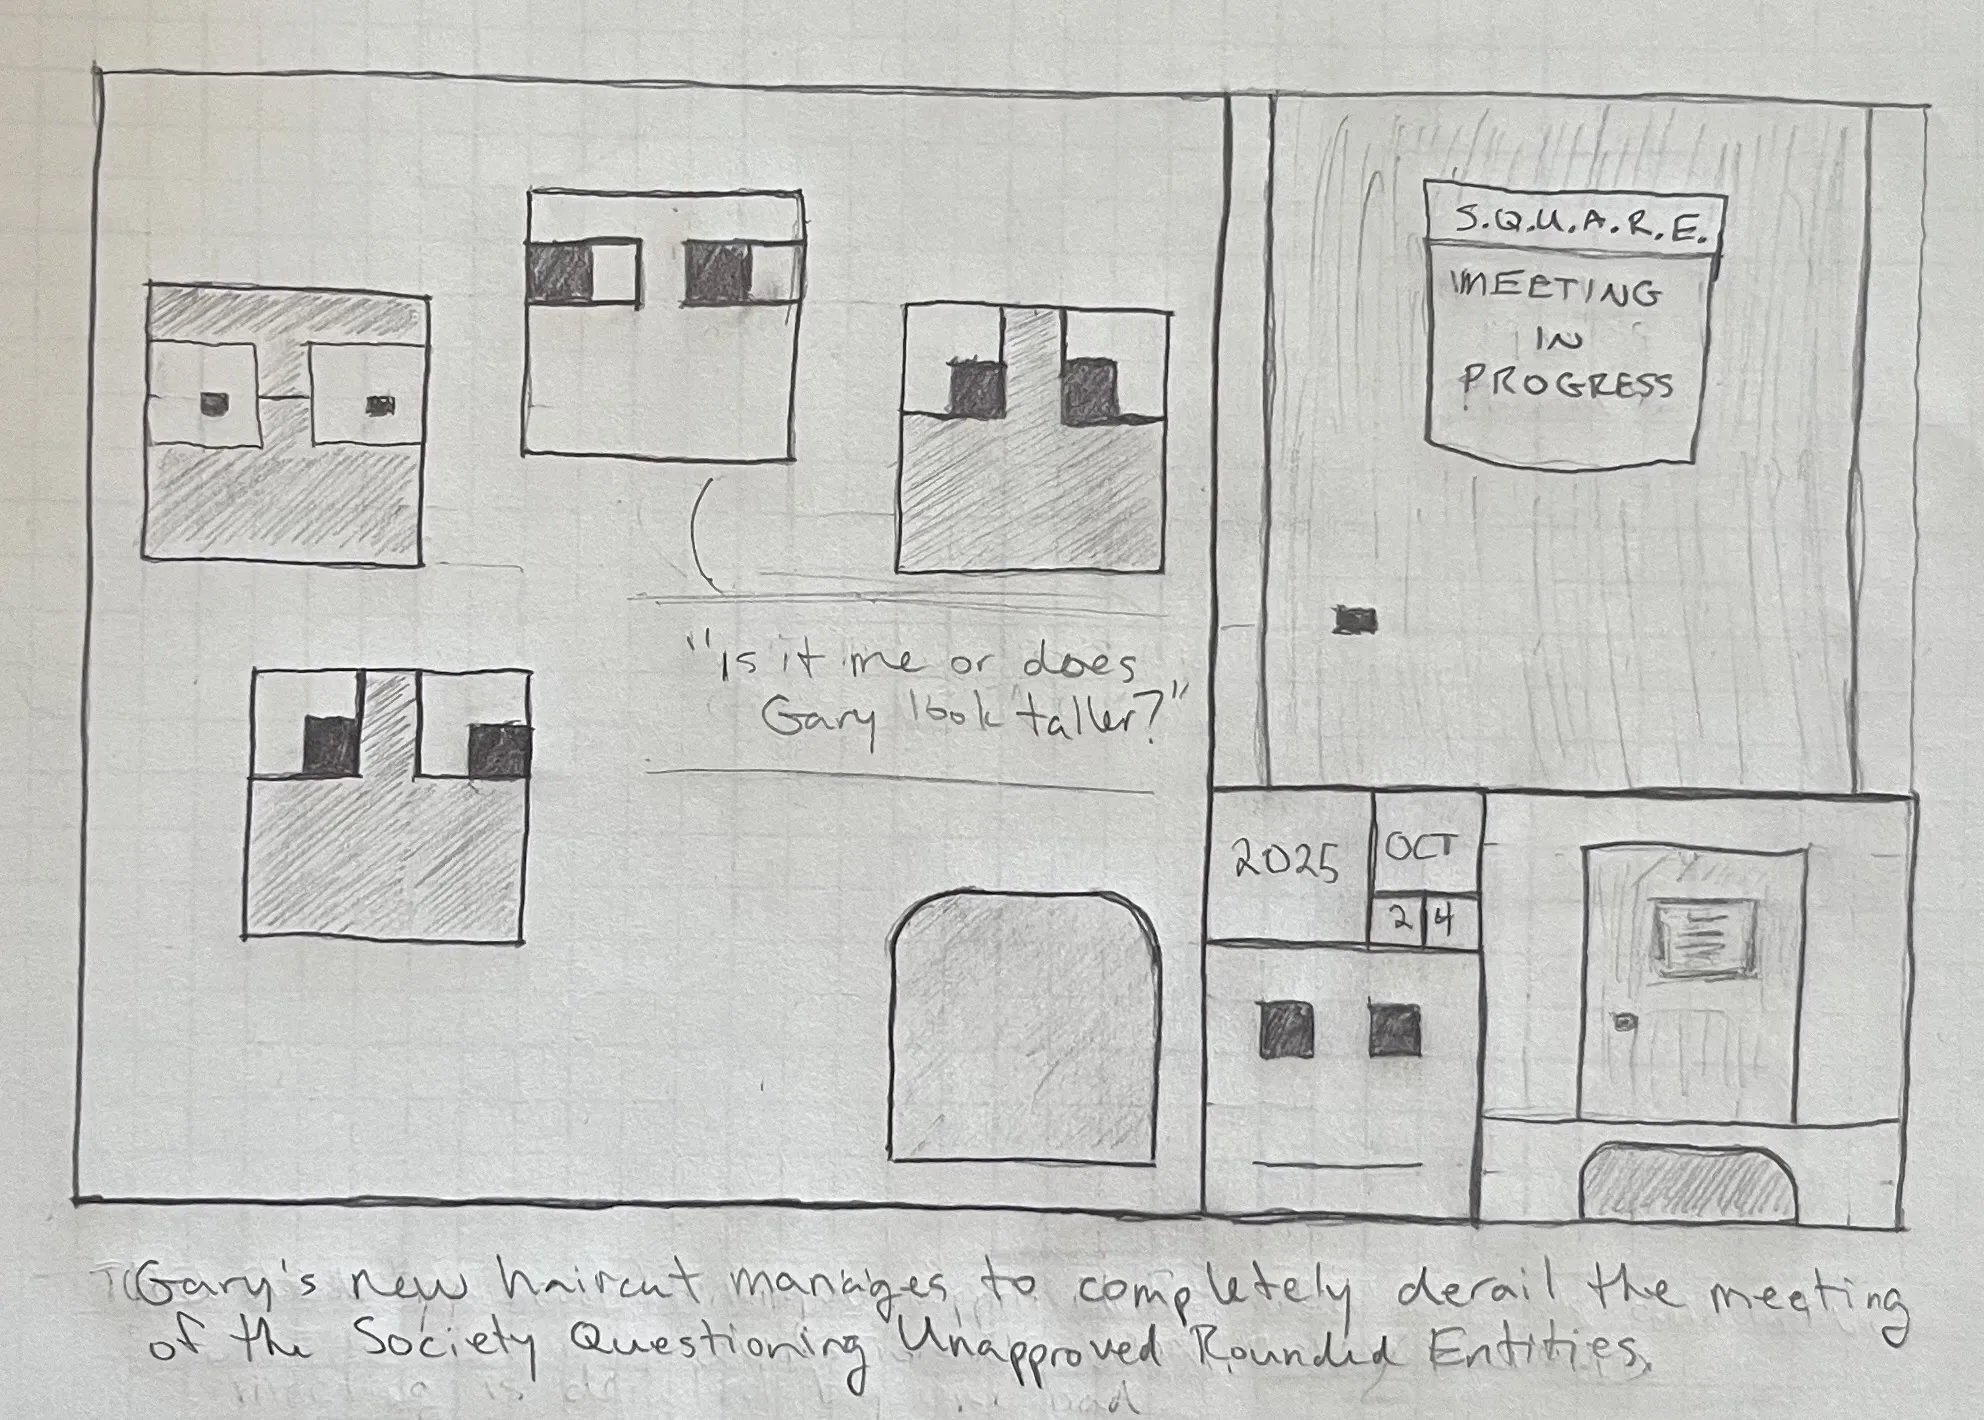 S.Q.U.A.R.E.
MEETING
IN
PROGRESS
"Is it me or does
Gary look taller?"
2025
OCT
24
Gary's new haircut manages to completely derail the meeting
of the Society Questioning Unapproved Rounded Entities.